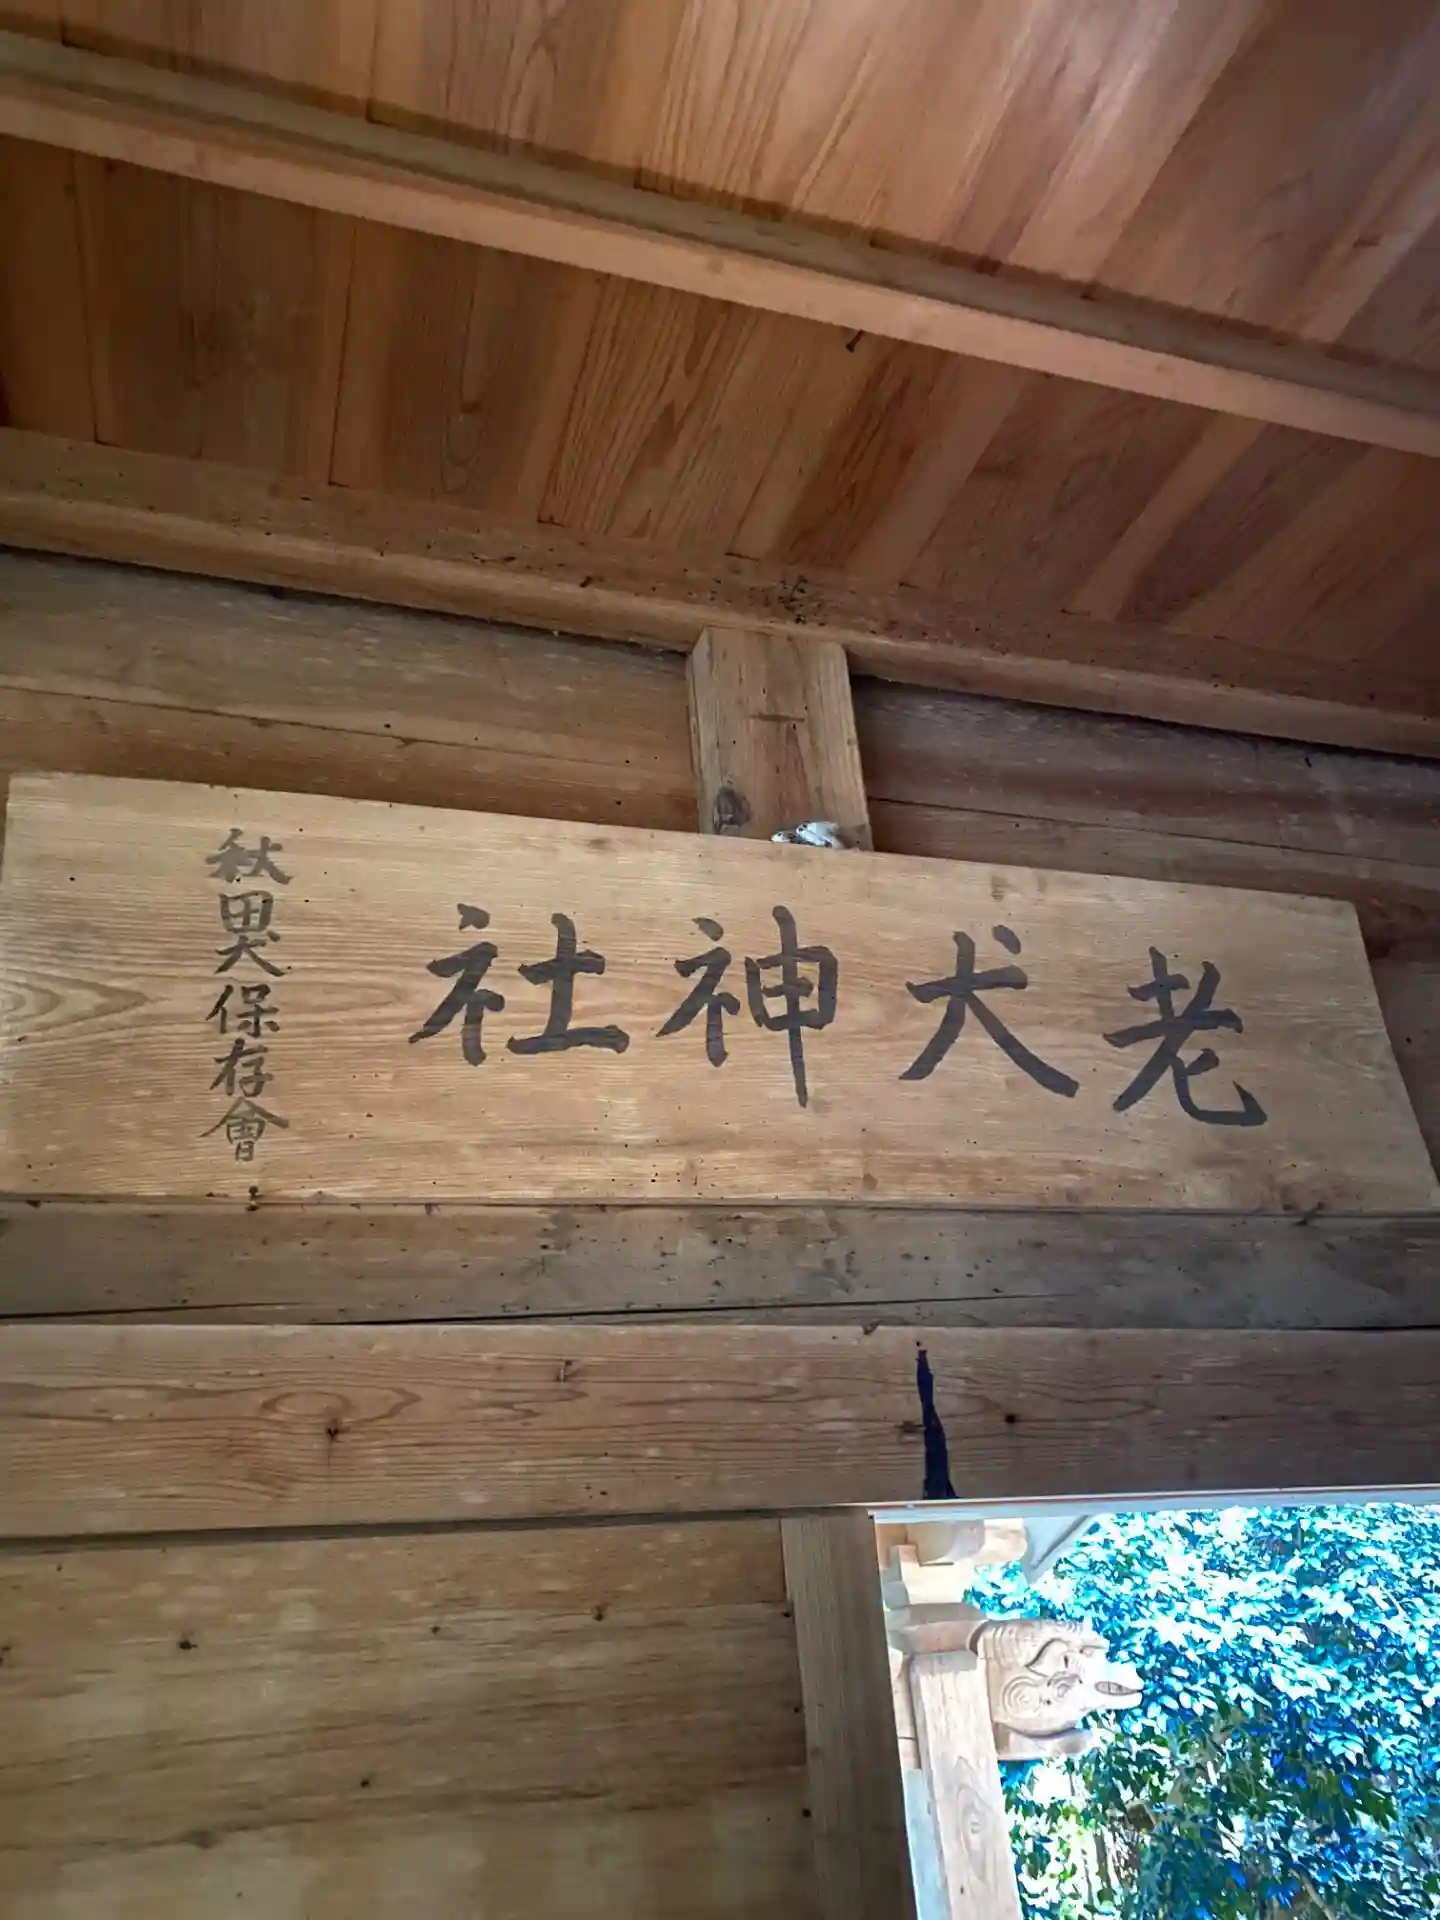 老犬神社
秋田犬保存會